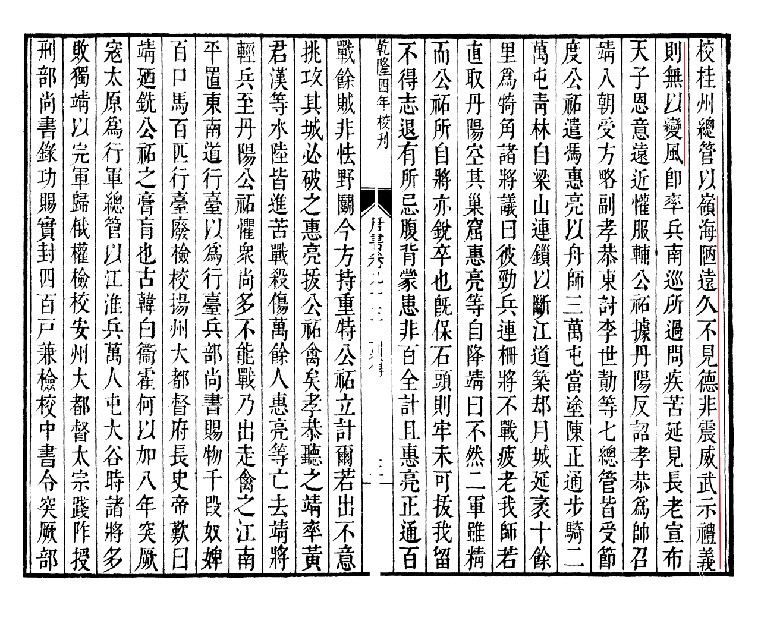 校桂州總管以嶺海陋遠久不見德非震威武示禮義
則無以變風即率兵南巡所過問疾苦延見長老宣布
天子恩意遠近懽服輔公祏據丹陽反詔孝恭爲帥召
靖入朝受方略副孝恭東討李世勣等七總管皆受節
度公祏遣馮惠亮以舟師三萬屯當塗陳正通步騎二
萬屯青林自梁山連鎖以斷江道築郤月城延袤十餘
里爲犄角諸將議曰彼勁兵連柵將不戰疲老我師若
直取丹陽空其巢窟惠亮等自降靖曰不然二軍雖精
而公祏所自將亦銳卒也既保石頭則牢未可拔我留
不得志退有所忌腹背蒙患非百全計且惠亮正通百
乾隆四年校刊
唐書卷九十三 列傳
戰餘賊非怯野鬭今方持重特公祏立計爾若出不意
挑攻其城必破之惠亮拔公祏禽矣孝恭聽之靖率黃
君漢等水陸皆進苦戰殺傷萬餘人惠亮等亡去靖將
輕兵至丹陽公祏懼衆尚多不能戰乃出走禽之江南
平置東南道行臺以爲行臺兵部尚書賜物千段奴婢
百口馬百匹行臺廢檢校揚州大都督府長史帝歎曰
靖廼銑公祏之膏肓也古韓白衞霍何以加八年突厥
寇太原爲行軍總管以江淮兵萬人屯大谷時諸將多
敗獨靖以完軍歸俄權檢校安州大都督太宗踐阼授
刑部尚書錄功賜實封四百戶兼檢校中書令突厥部